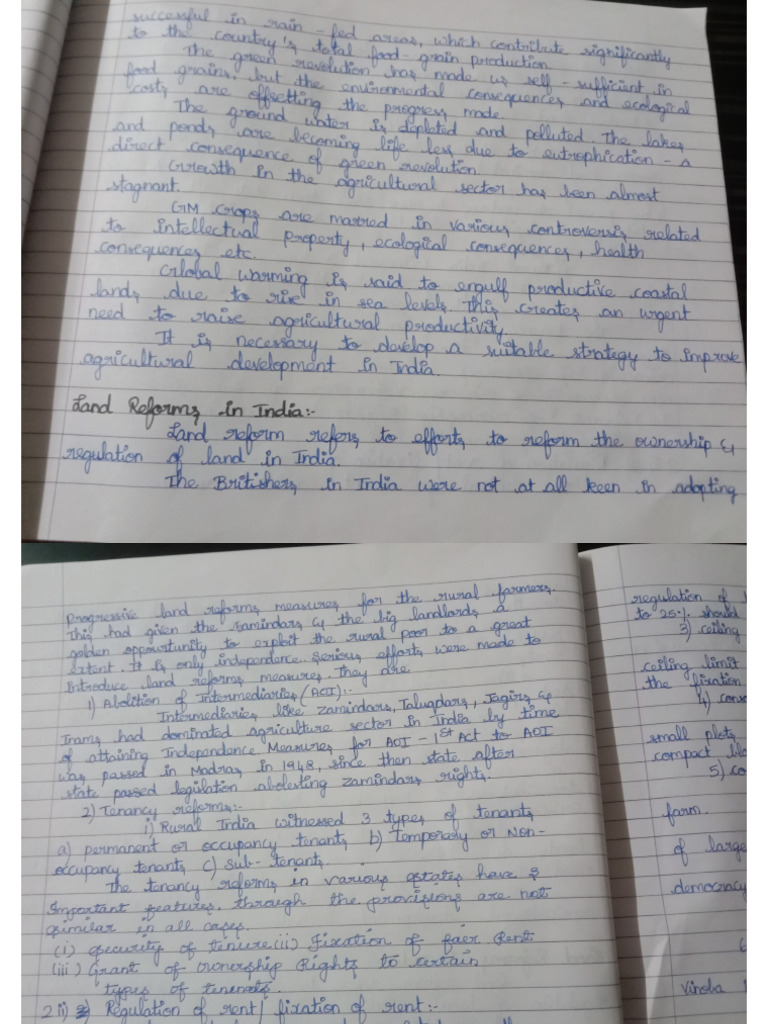 successful in rain - fed areas, which contribute significantly
to the country's total food-grain production.
The green revolution has made us self-sufficient in
food grains, but the environmental consequences and ecological
costs are offsetting the progress made.
The ground water is depleted and polluted. The lakes
and ponds are becoming life less due to eutrophication - a
direct consequence of green revolution.
Growth in the agricultural sector has been almost
stagnant.
GM crops are marred in various controversis related
to intellectual property, ecological consequences, health
consequences etc.
Global warming is said to engulf productive coastal
lands due to rise in sea levels. this creates an urgent
need to raise agricultural productivity.
It is necessary to develop a suitable strategy to improve
agricultural development in India.
Land Reforms in India:-
Land reform refers to efforts to reform the ownership &
regulation of land in India.
The Britishers in India were not at all keen in adopting
Progressive land reforms measures for the rural farmers.
This had given the zamindars & the big landlords a
golden oppourtunity to exploit the rural poor to a great
extent. It is only independence serious efforts were made to
Introduce land reforms measures. They are
1) Abolition of Intermediaries (AOI):-
Intermediaries like zamindars, Taluqdars, Jagirs &
Inams had dominated agriculture sector in India by time
of attaining Independence Measures for AOI - 1st Act to AOI
was passed in Madras in 1948, since then state after
state passed legislation abolesting zamindars rights.
2) Tenancy reforms:-
i) Rural India witnessed 3 types of tenants
a) permanent or occupancy tenants b) Temporary or Non-
occupancy tenants c) Sub-tenants.
The tenancy reforms in various states have 3
Important features. through the provisions are not
similar in all cases.
(i) security of tenure (ii) fixation of fair Rent
(iii) Grant of ownership Rights to certain
types of tenents.
2 ii) Regulation of rent / fixation of rent:-
regulation of
to 25% should
3) ceiling
ceiling limit
the fixation
4) cons
small plots
compact blo
5) co
farm.
of large
democracy
Vinoba